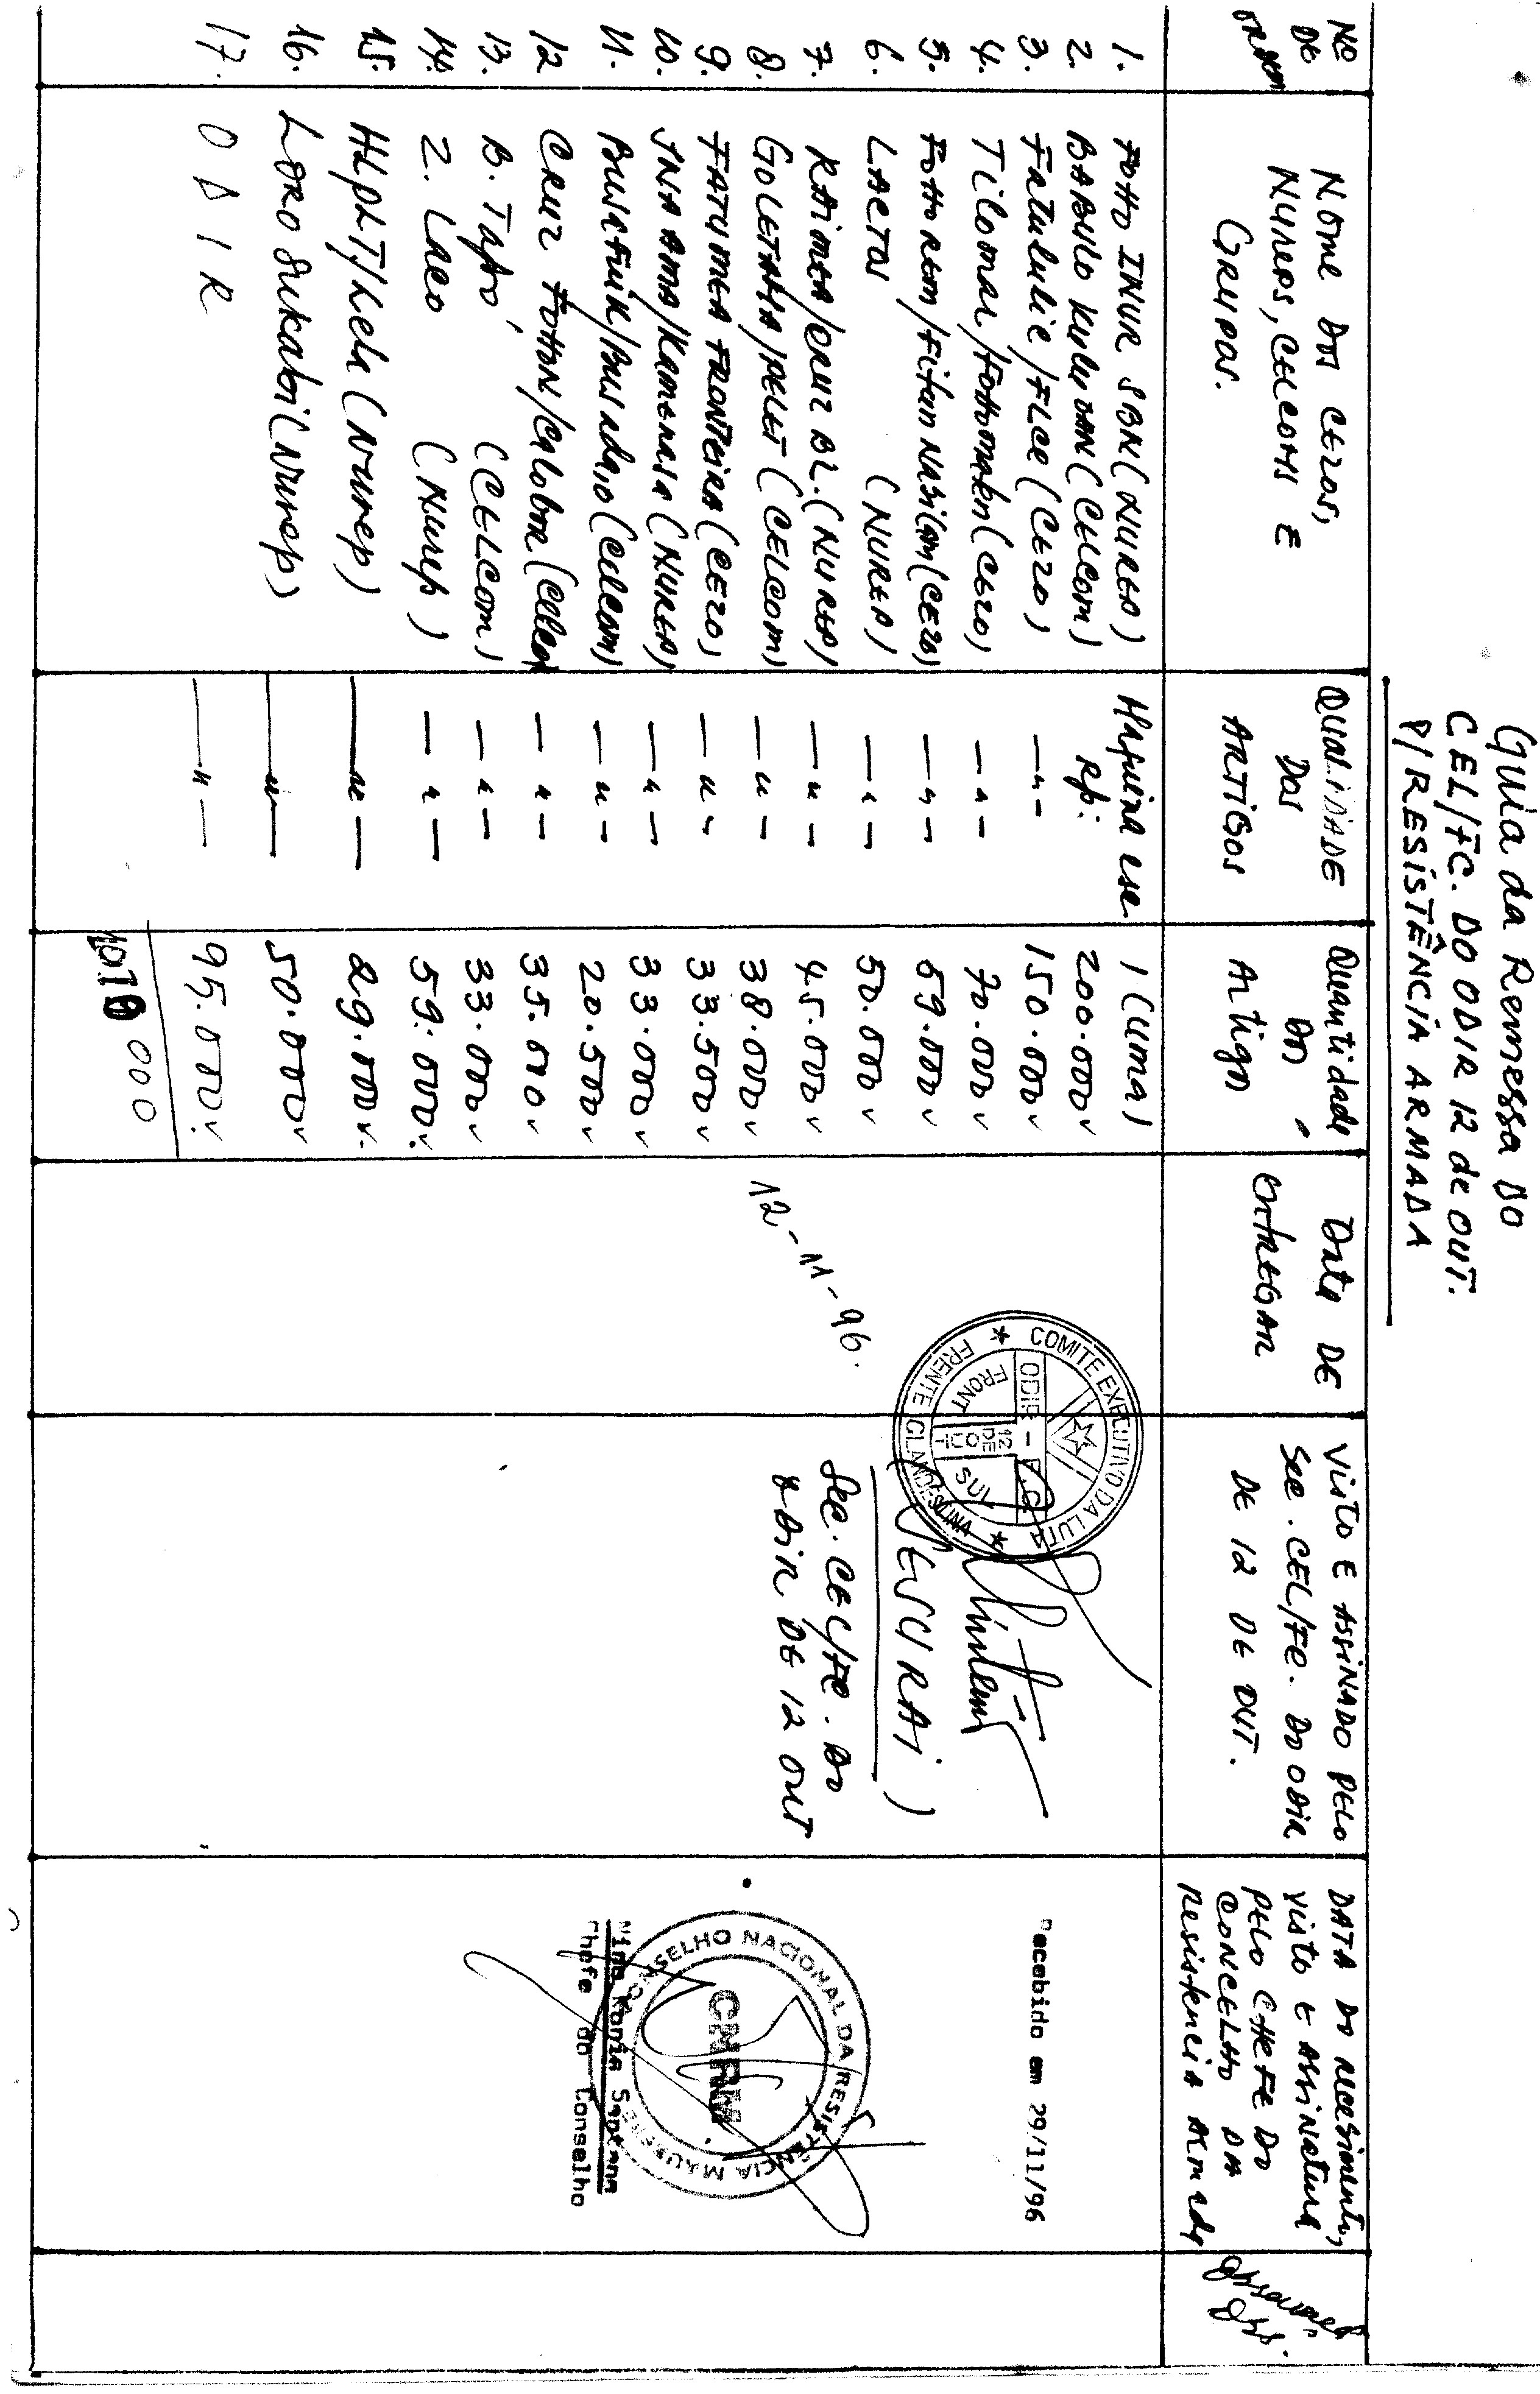 Guia da Remessa DO
CEL/FC. DO ODIR 12 de OUT.
P/RESISTÊNCIA ARMADA
Nº DE ORDEM
NOME DOS CEZOS, NUREPS, CELCOMS E GRUPOS.
QUALIDADE DOS ARTIGOS
Quantidade DO Artigo
Data DE ENTREGAR
VISTO E ASSINADO PELO SEC. CEL/FC. DO ODIR DE 12 DE OUT.
DATA DO RECEBIMENTO, VISTO E ASSINATURA PELO CHEFE DO CONCELHO DA RESISTENCIA ARMADA
1. FOHO INUR SBN (NUREP) Maquina esc. 1 (uma)
2. BABULO KULU OAN (CELCOM) Rp: 200.000
3. Fatululic/FLCE (CEZO) — " — 150.000
4. Tilomar/Fohomaken (CEZO) — " — 70.000
5. Foho REM/Fitun NASILAN (CEZO) — " — 69.000
6. LAETOS (NUREP) — " — 50.000
7. RAIMEA/CRUZ BZ. (NUREP) — " — 45.000
8. GOLETAHA/PELET (CELCOM) — " — 38.000
9. FATUMEA FRONTEIRA (CEZO) — " — 33.500
10. INA AMA/Kamenasa (NUREP) — " — 33.000
11. (Celcom) — " — 20.500
12 CRUZ FOHON/ — " — 35.000
13. B. Tapó (CELCOM) — " — 33.000
14. Z. Laco (Nurep) — " — 59.000
15. (Nurep) — " — 29.000
16. LORO Sukabi (Nurep) — " — 50.000
17. ODIR — " — 95.000
1010 000
12-11-96.
COMITE EXECUTIVO DA LUTA
FRENTE CLANDESTINA
ODIR - F.C.
FRONT SUL
12 DE OUT
SEC. CEL/FC. DO
ODIR DE 12 OUT
Recebido em 29/11/96
CONSELHO NACIONAL DA RESISTÊNCIA MAUBERE
CNRM
Nino Konis Santana
Chefe do Conselho